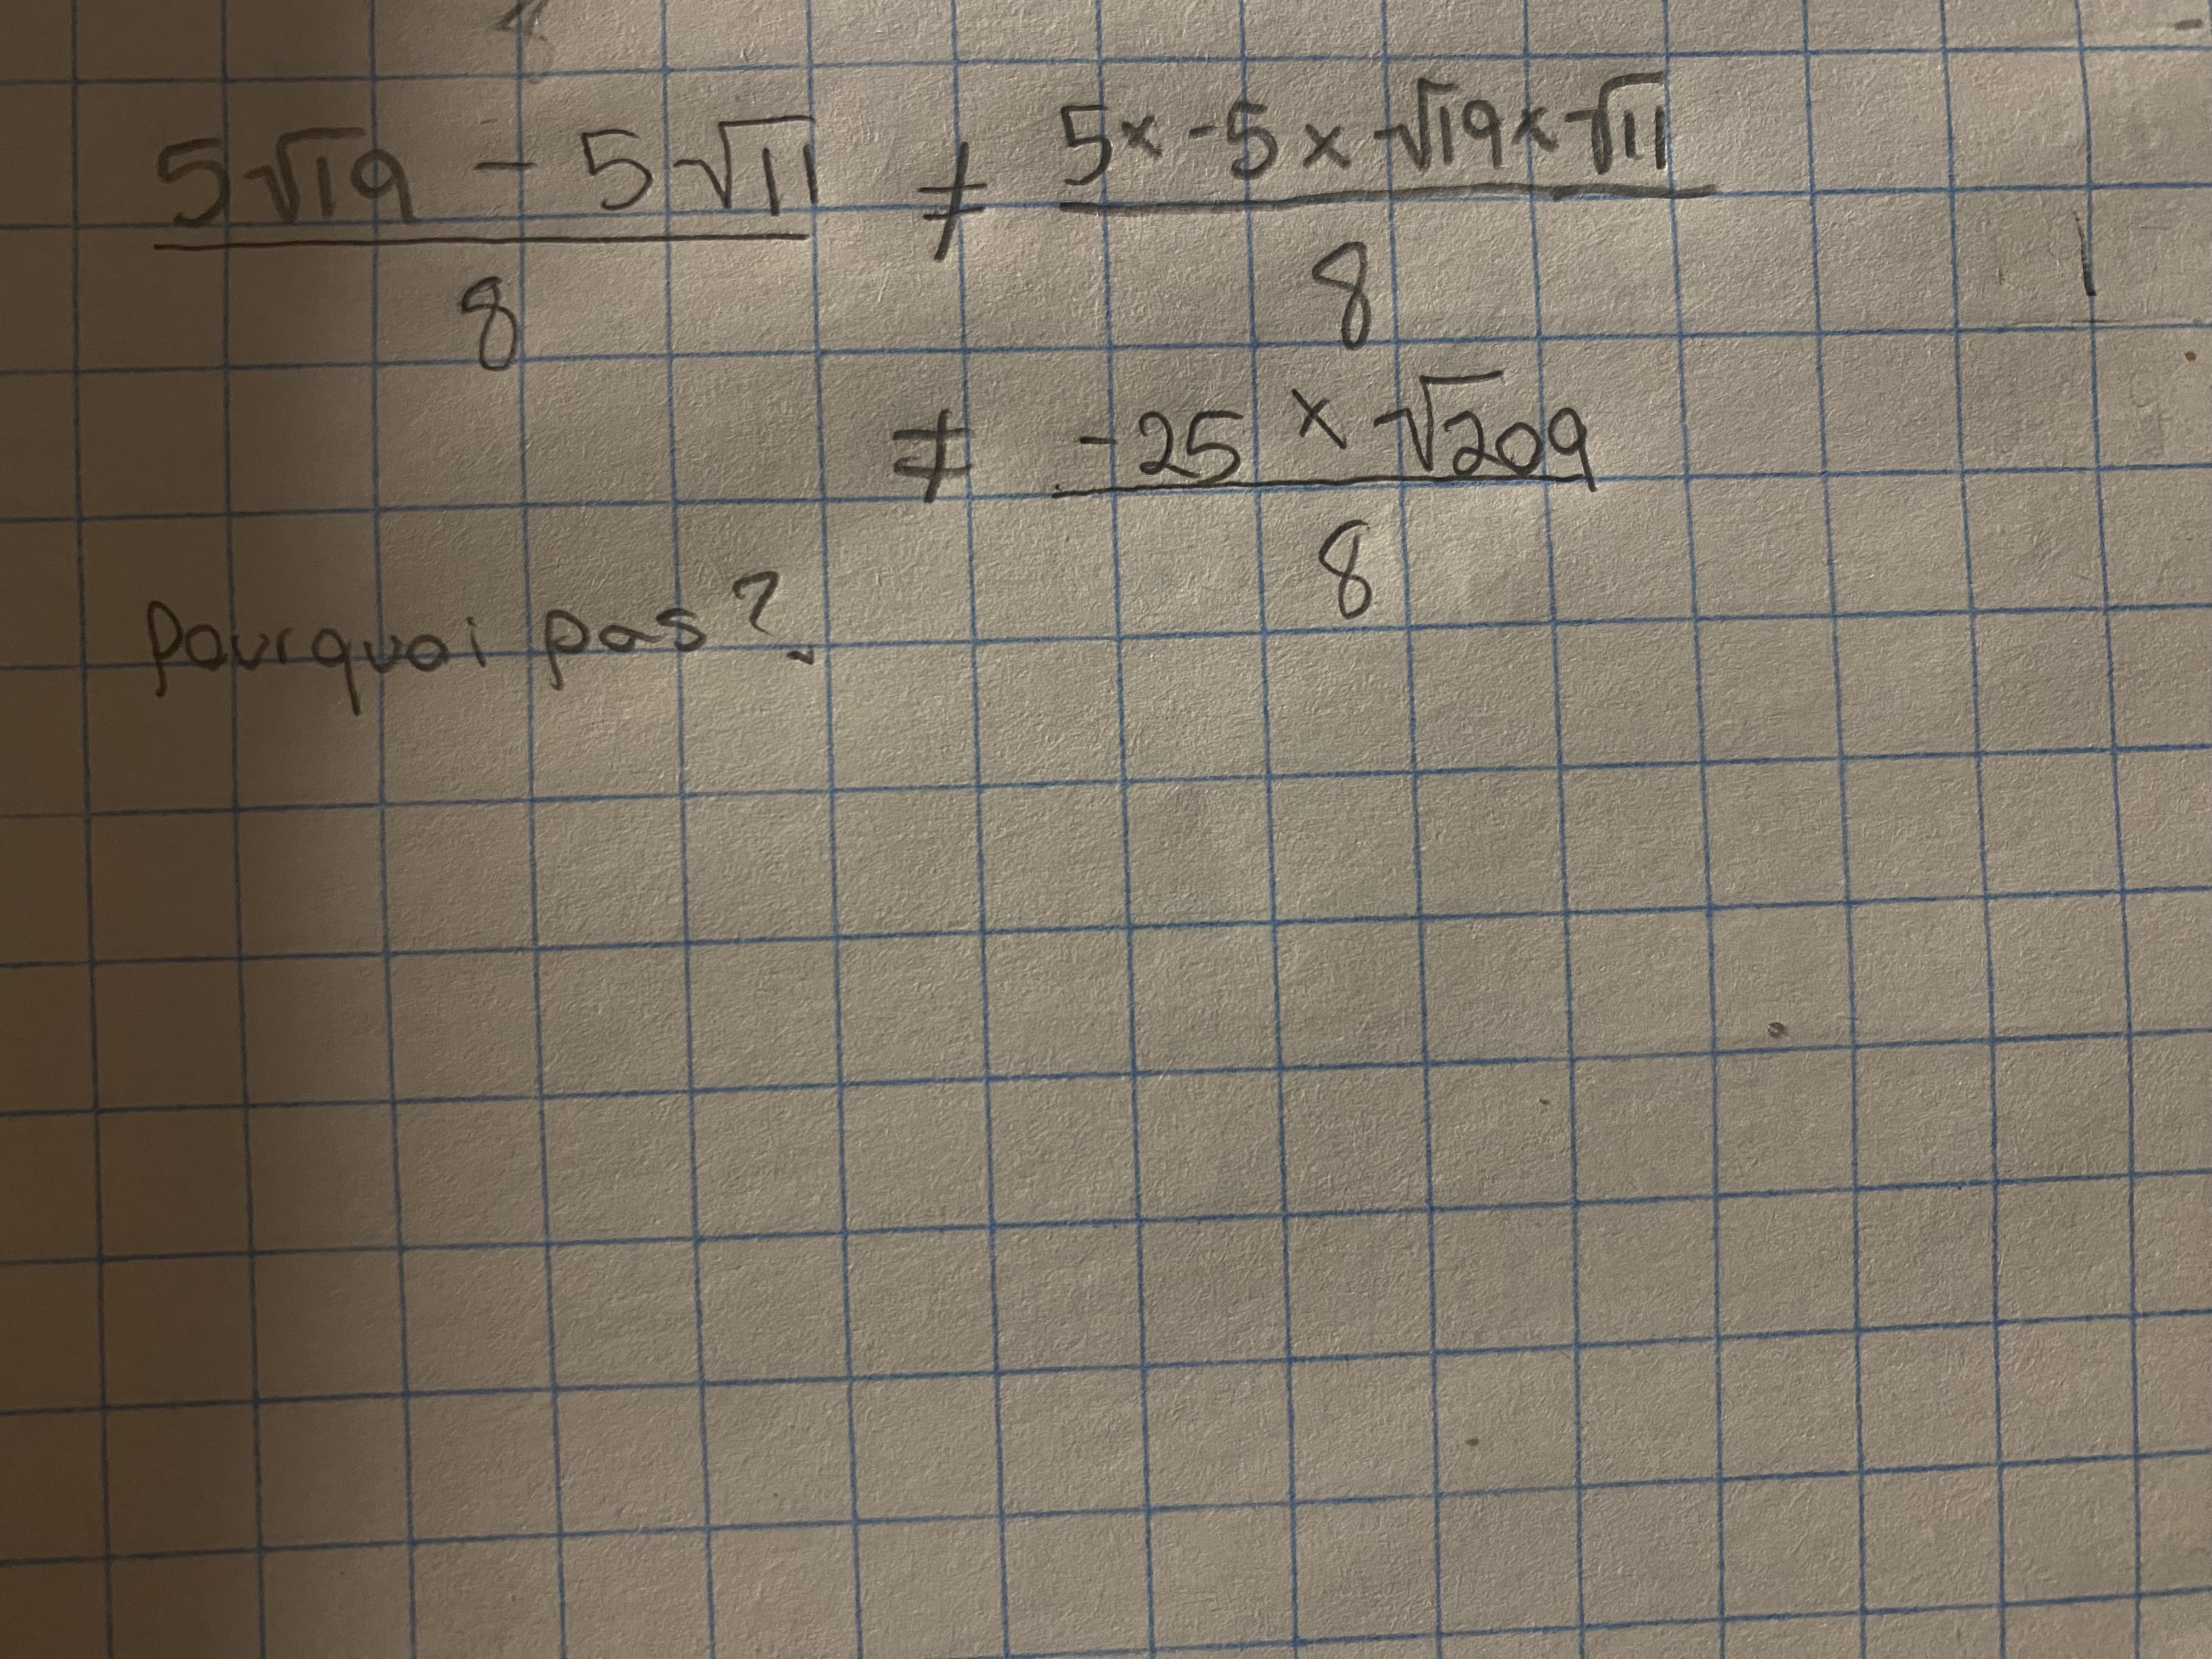 5√19 - 5√11 / 8 ≠ 5 x -5 x √19 x √11 / 8
≠ -25 x √209 / 8
Pourquoi pas?